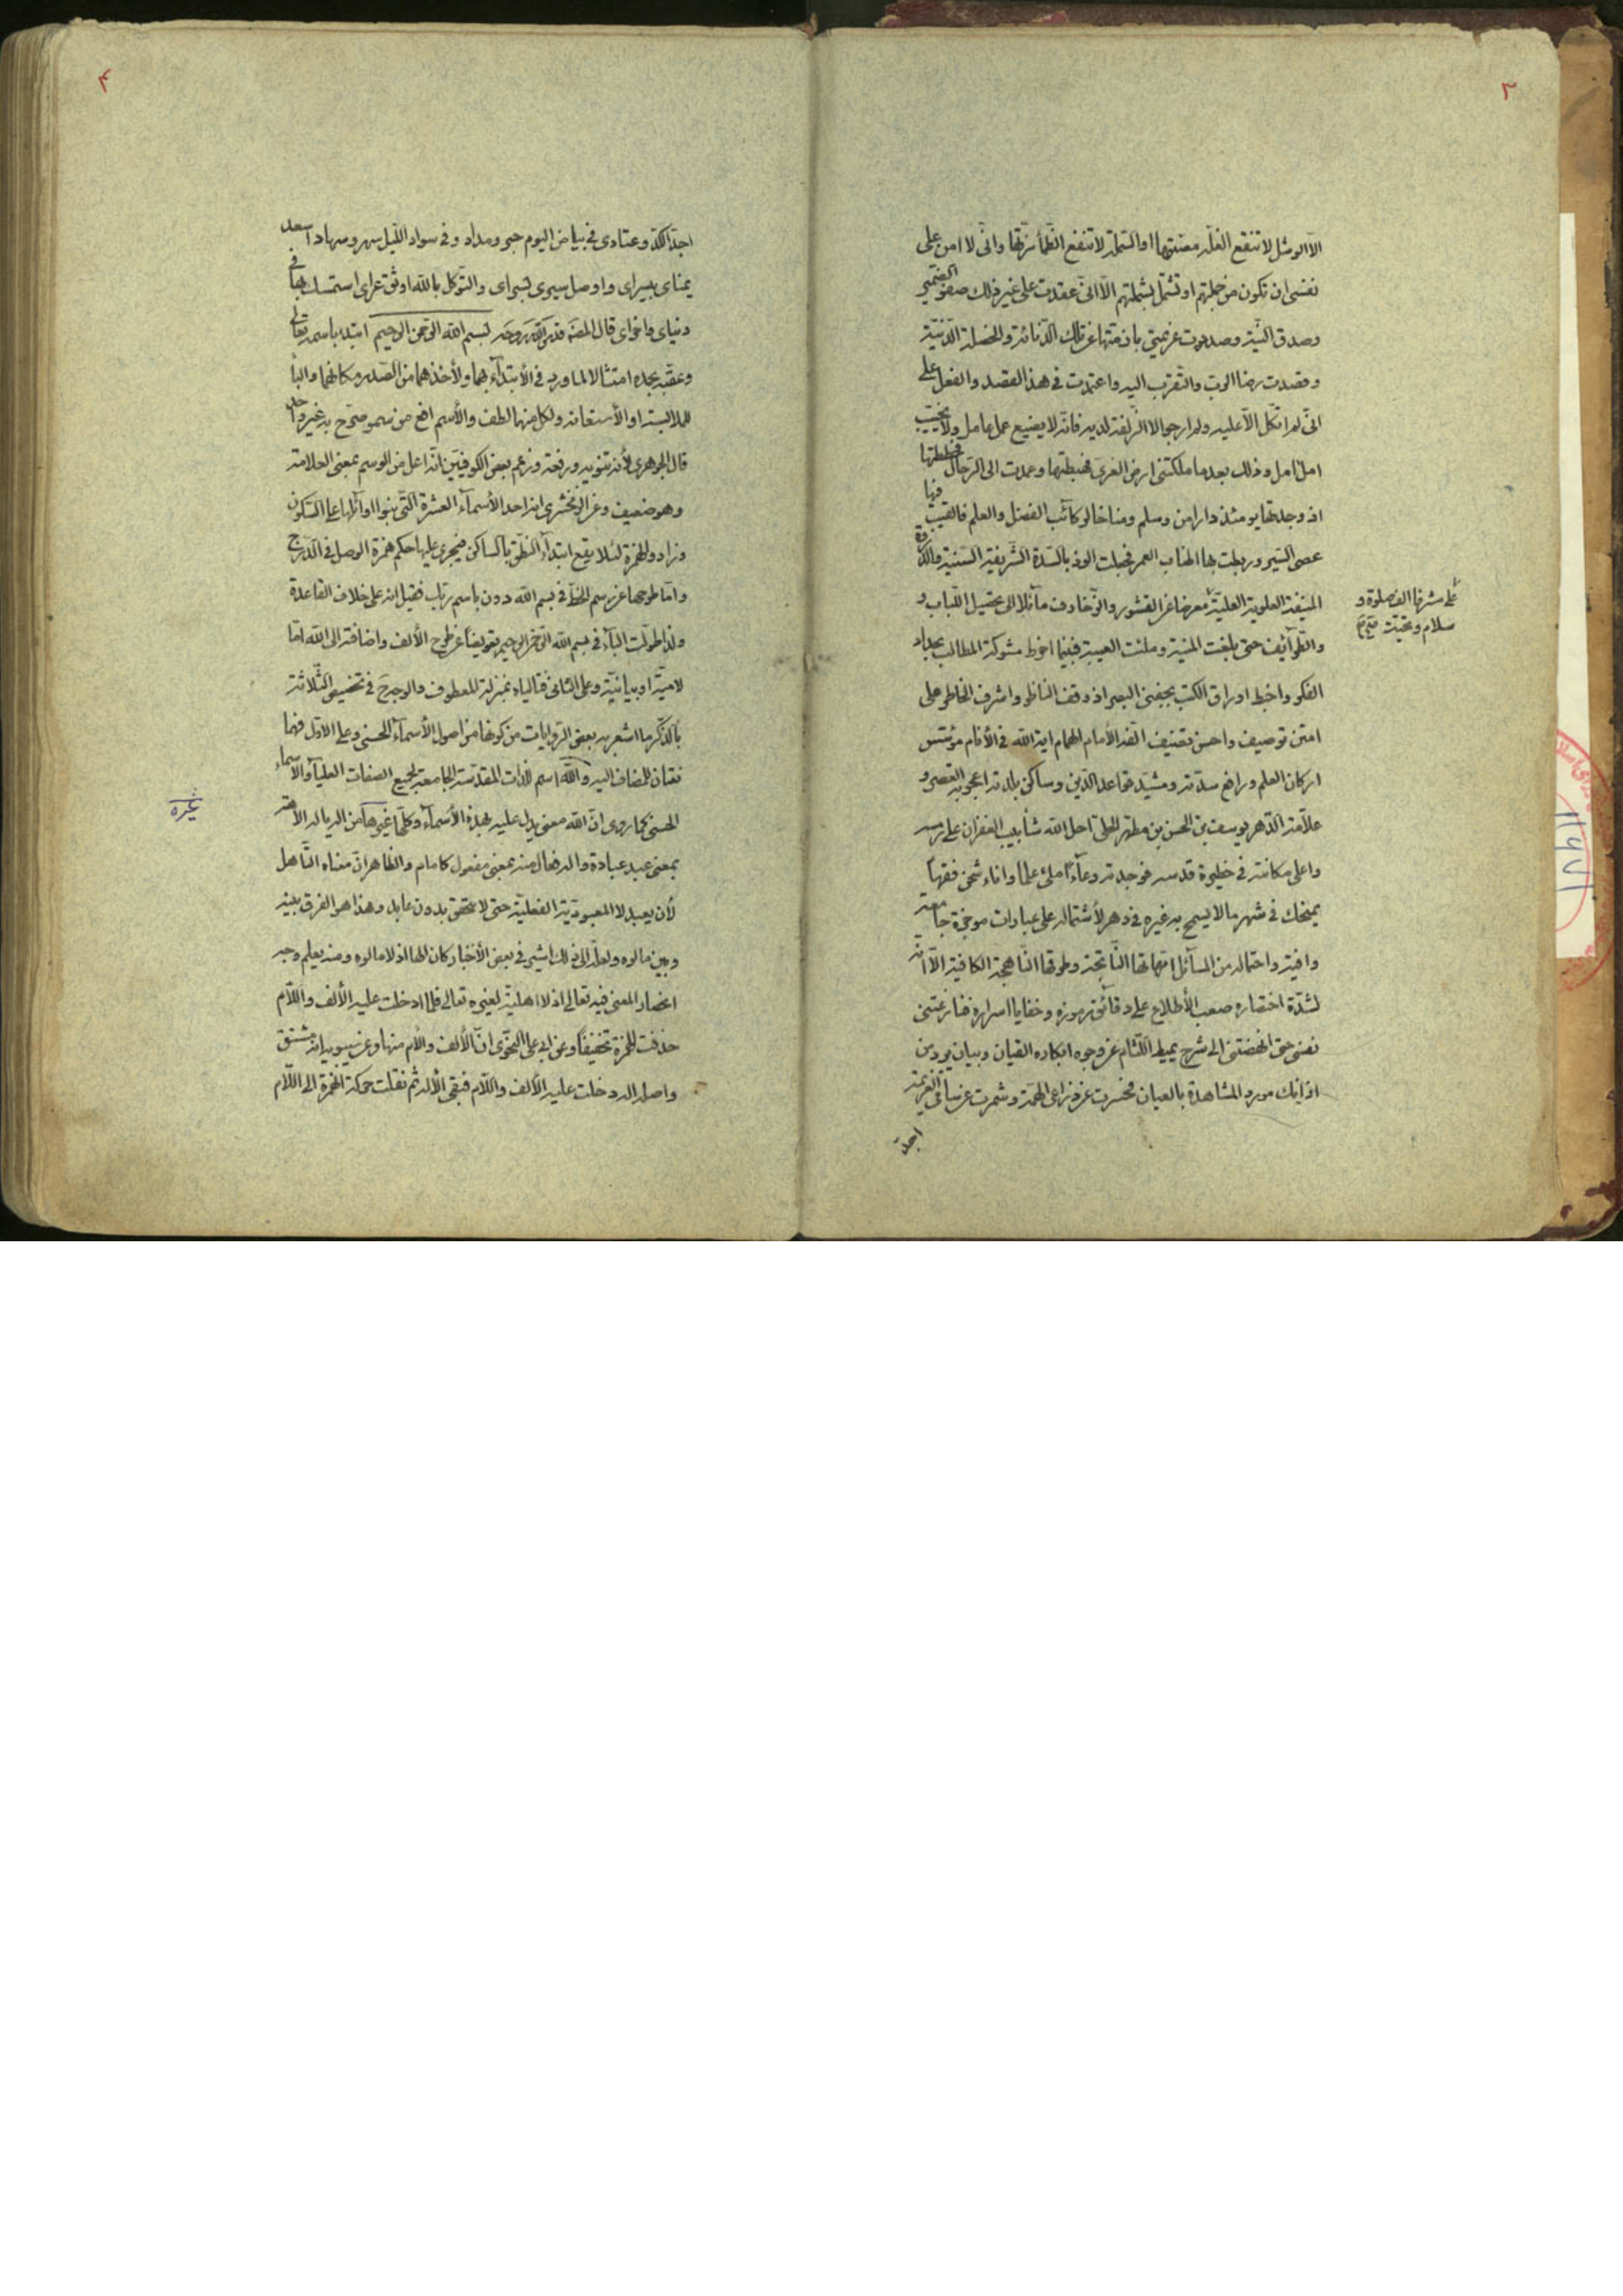 ٣
الا الوشل لا تنقع الغلة مصتها او الشملة لا تنفع الظمأ نزتها وانى لا امن على
نفسى ان تكون من جملتهم او تشمل بشملتهم الا انى عقدت على غير ذلك صفو الضمير
وصدق النية وصدفت عزيمتى بازمتها عن تلك الدنائة والخصلة الدنية
وقصدت رضا الرب والتقرب اليه واعتمدت فى هذا القصد والفعل على
انى لم اتكل الا عليه ولم ارج الا الزلفة لديه فانه لا يضيع عمل عامل ولا يخيب
امل امل وذلك بعد ما ملكتنى ارض الغرى فضبطتها وعمدت الى الرحال فحططتها
اذ وجدتها يومئذ دار امن وسلم ومناخا لركائب الفضل والعلم فالقيت فيها
عصى السير وربطت بها اطناب العمر فجعلت الوذ بالسدة الشريفة السنية والد
المنيفة العلوية العلية معرضا عن القشور والزخارف مائلا الى تحصيل اللباب و
على مشرفها الف صلوة و
سلام وتحية صح
والطرآئف حتى بلغت المنية وملئت العيبة فبينما اخرط شوكة المطالب بحداد
الفكر واخبط اوراق الكتب بجفنى البصر اذ وقف الناظر واشرف الخاطر على
امتن توصيف واحسن تصنيف الفه الأمام الهمام اية الله فى الأنام مؤسس
اركان العلم ورافع سدته ومشيد قواعد الدين وساكن بلدته اعجوبة العصر و
علامة الدهر يوسف بن الحسن بن مطهر الحلى احل الله شأبيب الغفران على رمسه
واعلى مكانته فى حظيرة قدسه فوجدته وعآءً املئ علما واناء شحن فقها
يمنحك فى شهر مالا يسمح به غيره فى دهر لأشتماله على عبارات موجزة جامعة
وافية واحتماله من المسآئل امهاتها الناتجة وطرقها الناهجة الكافية الا انه
لشدة اختصاره صعب الأطلاع على دقائق رموزه وخفايا اسراره فنازعتنى
نفسى حتى انهضتنى الى شرح يميط اللثام عن وجوه ابكاره القيان وبيان يورد من
اذانك مورد المشاهدة بالعيان فحسرت عن ذراعى الهمة وشمرت عن ساقى العزيمة
اجد
٤
اجد الكد وعتادى فى بياض اليوم حبر ومداد وفى سواد الليل سهر وسهاد اسعد
يمناى بيسراى واوصل سيرى بسراى والتوكل بالله اوثق عراى استمسك بها فى
دنياى واخراى قال المصنف قدس الله روحه بسم الله الرحمن الرحيم ابتدء باسمه تعالى
وعقبه بحمده امتثالا لما ورد فى الأبتدآء بهما ولأخذهما من الصدر مكانهما والبآء
للملابسة او الأستعانة ولكل منهما لطف والأسم افع من سمو صرح به غير واحد
قال الجوهرى لأنه تنويه ورفعة وزعم بعض الكوفيين انه اعل من الوسم بمعنى العلامة
وهو ضعيف وعن الزمخشرى انه احد الأسمآء العشرة التى بنوا اوآئلها على السكون
وزادوا الهمزة لئلا يقع ابتدآء النطق بالساكن فيجرى عليها حكم همزة الوصل فى الدرج
واما طرحها عن رسم الخط فى بسم الله دون باسم ربك فقيل انه على خلاف القاعدة
ولذا طولت البآء فى بسم الله الرحمن الرحيم تعويضا عن طرح الألف واضافته الى الله اما
لامية او بيانية وعلى الثانى فتالياه بمنزلة المعطوف والوجه فى تخصيص الثلاثة
بالذكر ما اشعر به بعض الروايات من كونها من اصول الأسمآء الحسنى وعلى الأول فهما
نعتان للمضاف اليه والله اسم للذات المقدسة الجامعة لجميع الصفات العليآ والأسماء
الحسنى كما روى ان الله معنى يدل عليه بهذه الأسمآء وكلها غيره من اله ياله الاهة
غيره
بمعنى عبد عبادة واله فعال منه بمعنى مفعول كامام والظاهر ان معناه التأهل
لأن يعبد لا المعبودية الفعلية حتى لا تتحقق بدون عابد وهذا هو الفرق بينه
وبين مالوه ولعله الى ذلك اشير فى بعض الأخبار كان الها اذ لا مالوه ومنه يعلم وجه
انحصار المعنى فيه تعالى اذ لا اهلية لغيره تعالى فلما ادخلت عليه الألف واللام
حذفت الهمزة تخفيفا وعن ابى على النحوى ان الألف واللام منها وعن سيبويه انه مشتق
واصله اله دخلت عليه الألف واللام فبقى الأله ثم نقلت حركة الهمزة الى اللام